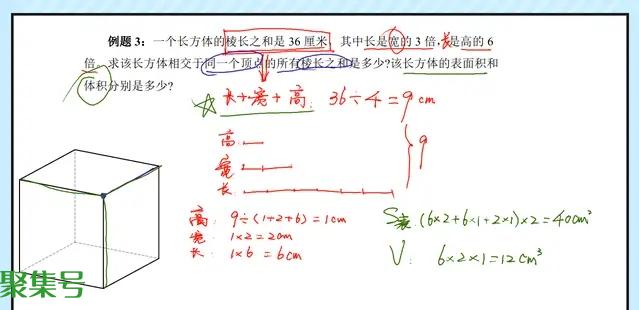 例题 3：一个长方体的棱长之和是 36 厘米，其中长是宽的 3 倍，长是高的 6
倍。求该长方体相交于同一个顶点的所有棱长之和是多少?该长方体的表面积和
体积分别是多少?
长+宽+高: 36÷4=9cm
高:
宽:
长:
9
高: 9÷(1+2+6)=1cm
宽: 1×2=2cm
长: 1×6=6cm
S表: (6×2+6×1+2×1)×2=40cm²
V: 6×2×1=12cm³
聚集号